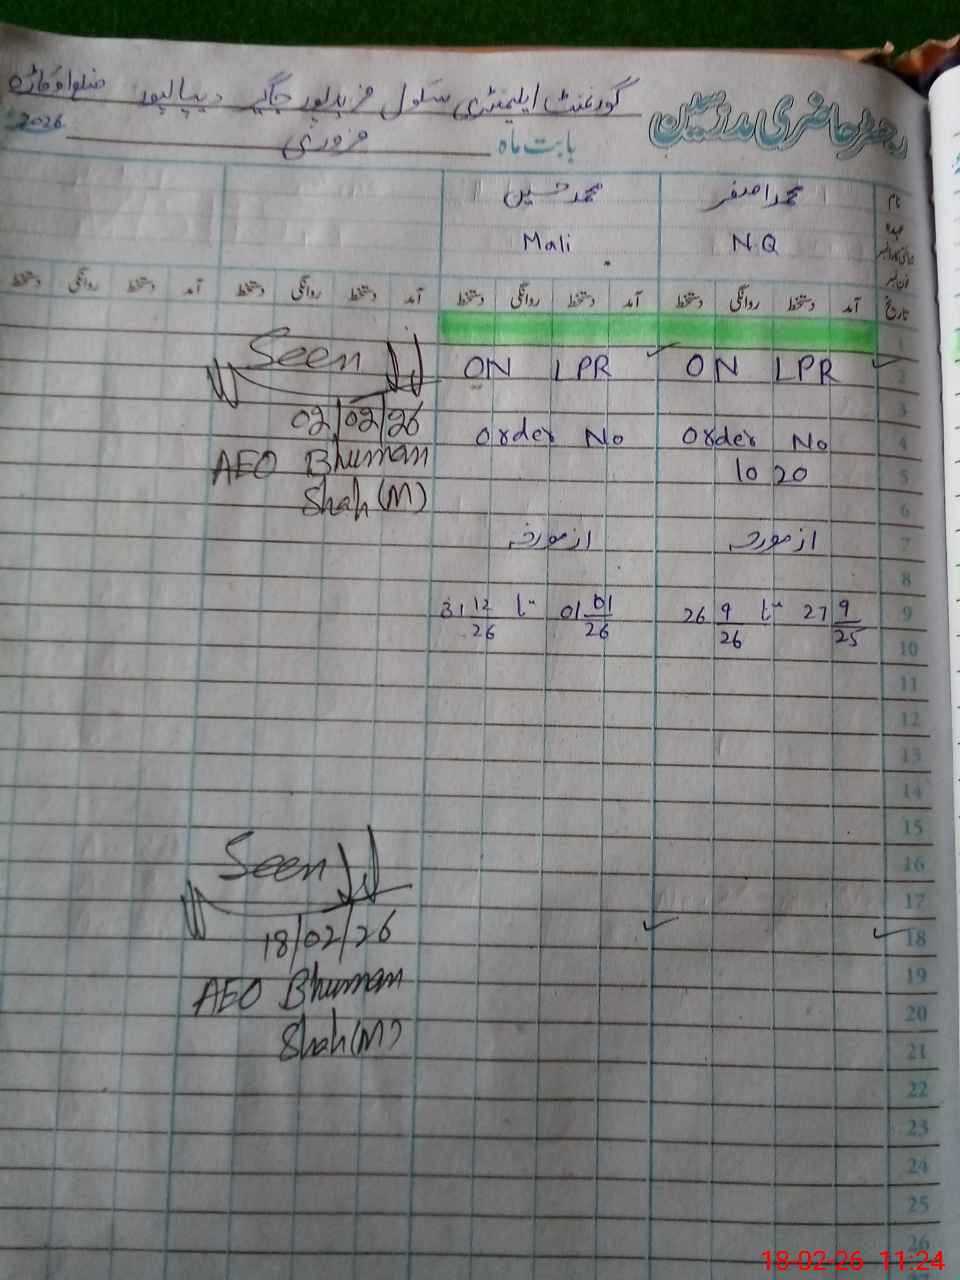 رجسٹر حاضری مدرسین
گورنمنٹ ایلیمنٹری سکول فرید پور جاگیر دیپالپور ضلع اوکاڑہ
بابت ماہ فروری 2026
نام محمد اصغر محمد حسین
عہدہ N.Q Mali
تاریخ آمد دستخط روانگی دستخط آمد دستخط روانگی دستخط آمد دستخط روانگی دستخط آمد دستخط روانگی دستخط
1
2 ON LPR ON LPR
3
4 Order No Order No
5 10 20
6
7 از مورخہ از مورخہ
8
9 27 9/25 تا 26 9/26 01 01/26 تا 31 12/26
10
11
12
13
14
15
16
17
18
19
20
21
22
23
24
25
26
Seen
02/02/26
AEO Bhuman
Shah (M)
Seen
18/02/26
AEO Bhuman
Shah (M)
18-02-26 11:24